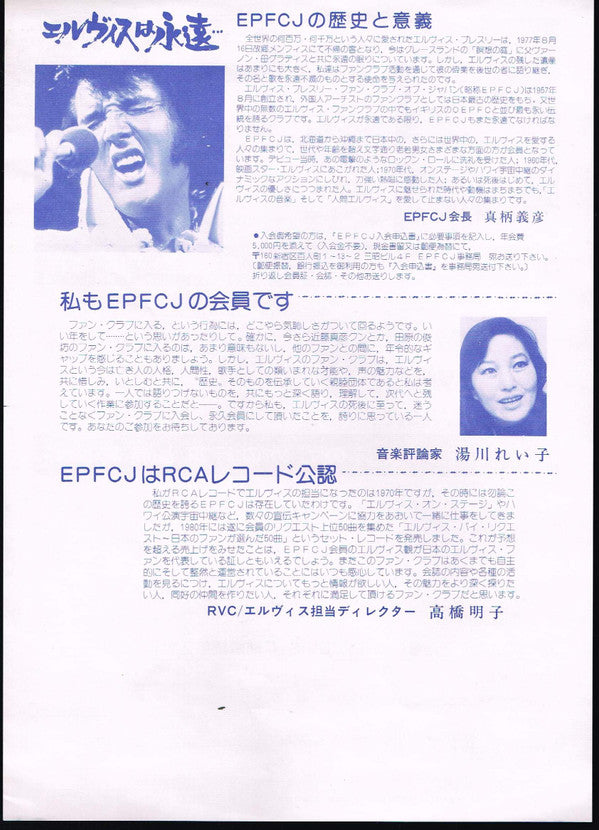 エルヴィスは永遠…
EPFCJの歴史と意義
全世界の何百万・何千万という人々に愛されたエルヴィス・プレスリーは、1977年8月
16日故郷メンフィスにて不帰の客となり、今はグレースランドの「瞑想の庭」に父ヴァー
ノン・母グラディスと共に永遠の眠りについています。しかし、エルヴィスの残した遺産
はあまりにも大きく、私達はファンクラブ活動を通して彼の音楽を後世の者に語り継ぎ、
その名と歌を永遠不滅のものとする使命を与えられたのです。
エルヴィス・プレスリー・ファン・クラブ・オブ・ジャパン(略称EPFCJ)は1957年
8月に創立され、外国人アーチストのファンクラブとしては日本最古の歴史をもち、又世
界中の無数のエルヴィス・ファンクラブの中でもイギリスのEPFCと並び最も永い伝
統を誇るクラブです。エルヴィスが永遠である限り、EPFCJもまた永遠でなければな
りません。
EPFCJは、北海道から沖縄まで日本中の、さらには世界中の、エルヴィスを愛する
人々の集まりで、世代や年齢を超え文字通り老若男女さまざまな方面の方が会員となって
います。デビュー当時、あの電撃のようなロックン・ロールに洗礼を受けた人；1960年代、
映画スター・エルヴィスにあこがれた人；1970年代、オンステージやハワイ宇宙中継のダイ
ナミックなアクションにしびれ、力強い熱唱に感動した人；あるいは死後はじめて、エル
ヴィスの優しさにつつまれた人。エルヴィスに魅せられた時代や動機はまちまちでも、「エ
ルヴィスの音楽」そして「人間エルヴィス」を愛して止まない人々の集まりです。
EPFCJ会長 真柄義彦
●入会御希望の方は、「EPFCJ入会申込書」に必要事項を記入し、年会費
5,000円を添えて(入会金不要)、現金書留又は郵便為替にて、
〒160新宿区百人町1-13-2 三昭ビル4F EPFCJ事務局 宛お送り下さい。
(郵便振替、銀行振込を御利用の方も「入会申込書」を事務局宛送付下さい。)
折り返し会員証・会誌・その他お送りします。
私もEPFCJの会員です
ファン・クラブに入る、という行為には、どこやら気恥しさがついて回るようです。い
い年をして………という思いがあったりして。確かに、今さら近藤真彦クンとか、田原の俊
坊のファン・クラブに入るのは、あまり意味もないし、他のファンとの間に、年令的なギ
ャップを感じることもありましょう。しかし、エルヴィスのファン・クラブは、エルヴィ
スという今は亡き人の人格、人間性、歌手としての類いまれな才能や、声の魅力などを、
共に惜しみ、いとしむと共に、"歴史"そのものを伝承していく親睦団体であると私は考
えています。一人では語りつげないものを、共にもっと深く語り、理解して、次代へと残
していく作業に参加することだと――。ですから私も、エルヴィスの死後に至って、迷う
ことなくファン・クラブに入会し、永久会員にして頂いたことを、誇りに思っている一人
です。あなたのご参加をお待ちしております。
音楽評論家 湯川れい子
EPFCJはRCAレコード公認
私がRCAレコードでエルヴィスの担当になったのは1970年ですが、その時には勿論こ
の歴史を誇るEPFCJは存在していたわけです。「エルヴィス・オン・ステージ」やハ
ワイ公演宇宙中継など、数々の宣伝キャンペーンに協力をあおいで一緒に仕事をしてきま
したが、1980年には遂に会員のリクエスト上位50曲を集めた「エルヴィス・バイ・リクエ
スト～日本のファンが選んだ50曲」というセット・レコードを発売しました。これが予想
を超える売上げをみせたことは、EPFCJ会員のエルヴィス観が日本のエルヴィス・フ
ァンを代表している証しともいえるでしょう。またこのファン・クラブはあくまでも自主
的にそして整然と運営されていることにはいつも感心しています。会誌の内容や各種の活
動を見るにつけ、エルヴィスについてもっと情報が欲しい人、その魅力をより深く探りた
い人、同好の仲間を作りたい人、それぞれに満足して頂けるファン・クラブだと思います。
RVC/エルヴィス担当ディレクター 高橋明子